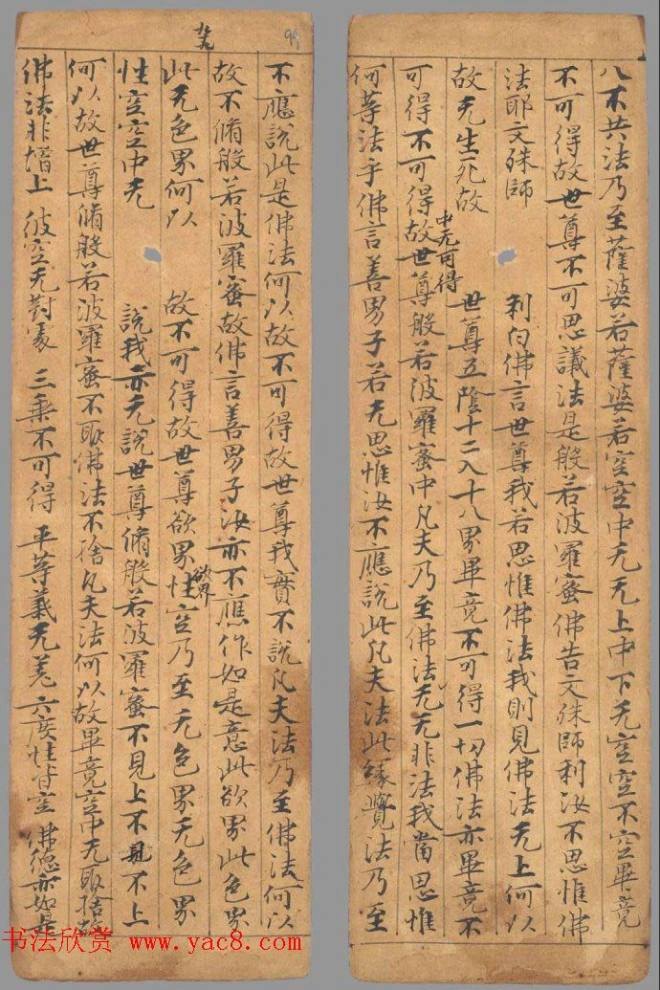 八不共法乃至薩婆若薩婆若空空中无无上中下无空空不空畢竟
不可得故世尊不可思議法是般若波羅蜜佛告文殊師利汝不思惟佛
法耶文殊師利白佛言世尊我若思惟佛法我則見佛法无上何以
故无生死故世尊五陰十二入十八界畢竟不可得一切佛法亦畢竟不
可得不可得故世尊般若波羅蜜中凡夫乃至佛法无无非法我當思惟
中无可得
何等法乎佛言善男子若无思惟汝不應說此凡夫法此緣覺法乃至
九十九
99
不應說此是佛法何以故不可得故世尊我實不說凡夫法乃至佛法何以
故不脩般若波羅蜜故佛言善男子汝亦不應作如是意此欲界此色界
此无色界何以故不可得故世尊欲界性空乃至无色界无色界
欲界
性空空中无說我亦无說世尊脩般若波羅蜜不見上不見不上
何以故世尊脩般若波羅蜜不取佛法不捨凡夫法何以故畢竟空中无取捨故
佛法非增上 彼空无對處 三乘不可得 平等義无差 六度性皆空 佛德亦如是
书法欣赏 www.yac8.com